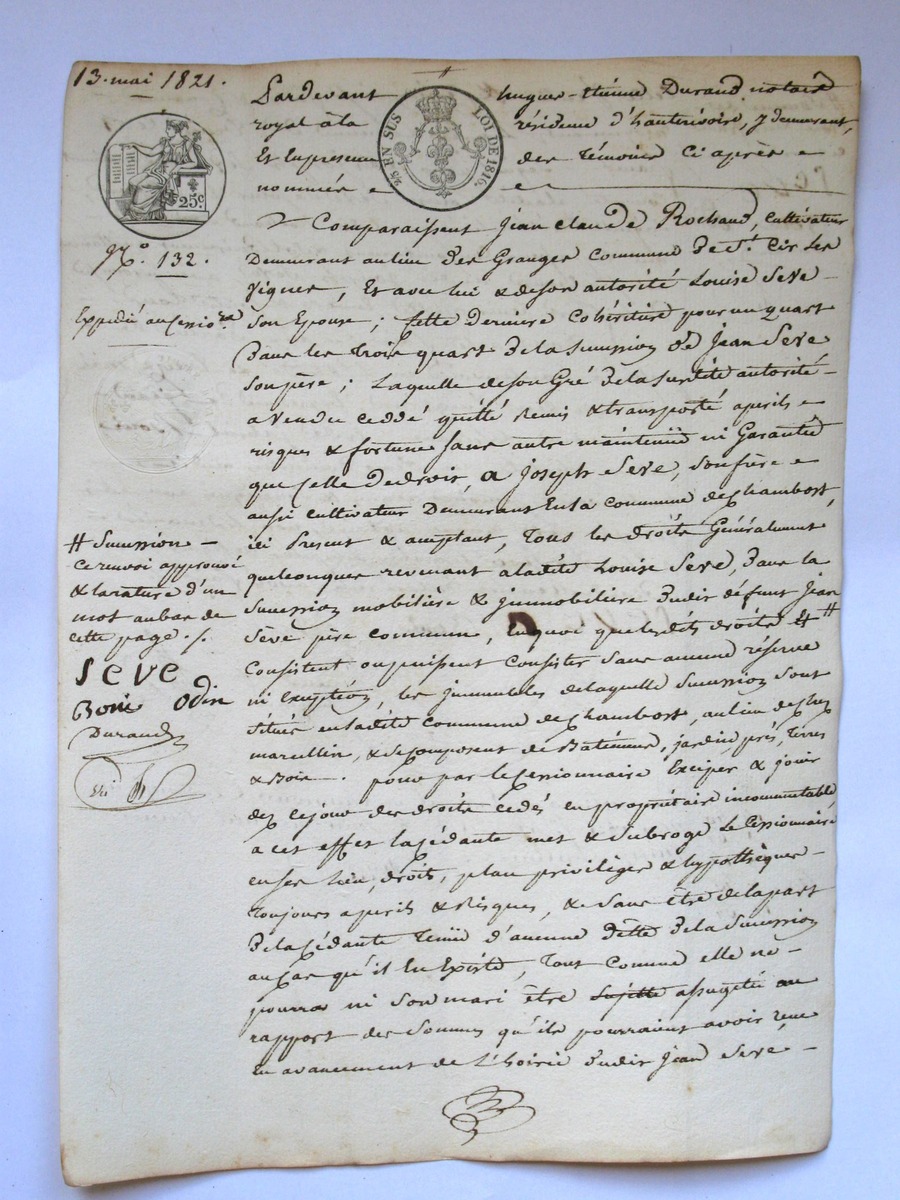 13. mai 1821.
25c
25 EN SUS LOI DE 1816.
N.° 132.
Expédié au Cessio.re
Pardevant hugues-étienne Durand notaire
royal à la résidence d'hauterivoire, y demeurant,
Et En presence des témoins ci après
nommés
Comparaissent Jean Claude Rochand, Cultivateur
Demeurant au lieu des Granges commune De St. Cir Les
Vignes, Et avec lui & de son autorité Louise Seve
Son Epouse ; Cette Derniere Cohéritière pour un quart
Dans les trois quart De la Succession De Jean Seve
Son père ; Laquelle de son Gré De la Susdite autorité
a Vendu ceddé quitté Remis & transporté a perils
risques & fortune Sans autre maintenüe ni Garantie
que Celle De droit, a Joseph Seve, Son frère
aussi cultivateur Demeurant En la commune de Chambost,
ici Present & acceptant, Tous les droits Généralement
quelconques revenant a ladite Louise Seve, Dans la
Succession mobilière & jmmobilière Dudit défunt Jean
Sève père commun, En quoi que lesdits droits & #
Consistent ou puissent Consister Sans aucune réserve
ni Exception, les jmmeubles de laquelle Succession Sont
Situés en ladite Commune de Chambost, au lieu de Chez
marcellin, & Se Composent de Batimens, jardin, prés, Terres
& Bois. pour par le Cessionnaire Exciper & jouir
dez ce jour des droits cédés en propriétaire incommutable
a cet effet la Cédante met & Subroge Le Cessionnaire
en ses lieu, droits, place privilèges & hypothèques
toujours a perils & Risques, & Sans être de la part
De la Cédante Tenüe d'aucune Dette De la Succession
au Cas qu'il En Existe, Tout Comme elle ne
pourra ni Son mari être sujette assugetie au
rapport des Sommes qu'ils pourraient avoir reçue
En avancement de L'hoirie Dudit Jean Seve
# Succession
Ce renvoi approuvé
& la rature d'un
mot au bas de
cette page ./.
Seve
Odin
Durand